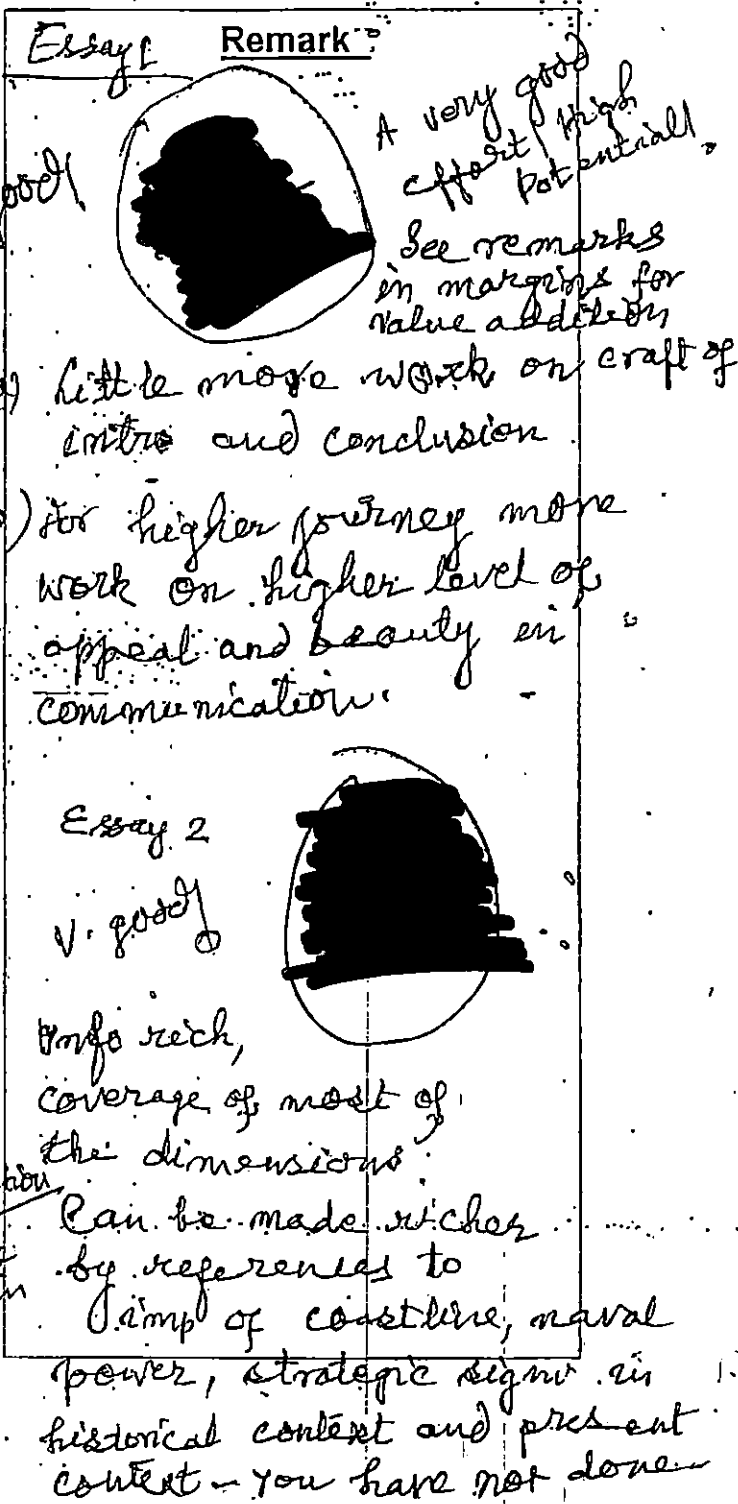 Essay 1 Remark
A very good
effort / High
Potential.
See remarks
in margins for
value addition
Little more work on craft of
intro and conclusion.
For higher journey more
work on higher level of
appeal and beauty in
communication.
Essay 2
V. good
Info rich,
coverage of most of
the dimensions.
Can be made richer
by references to
imp of coastline, naval
power, strategic signi. in
historical context and present
context - You have not done